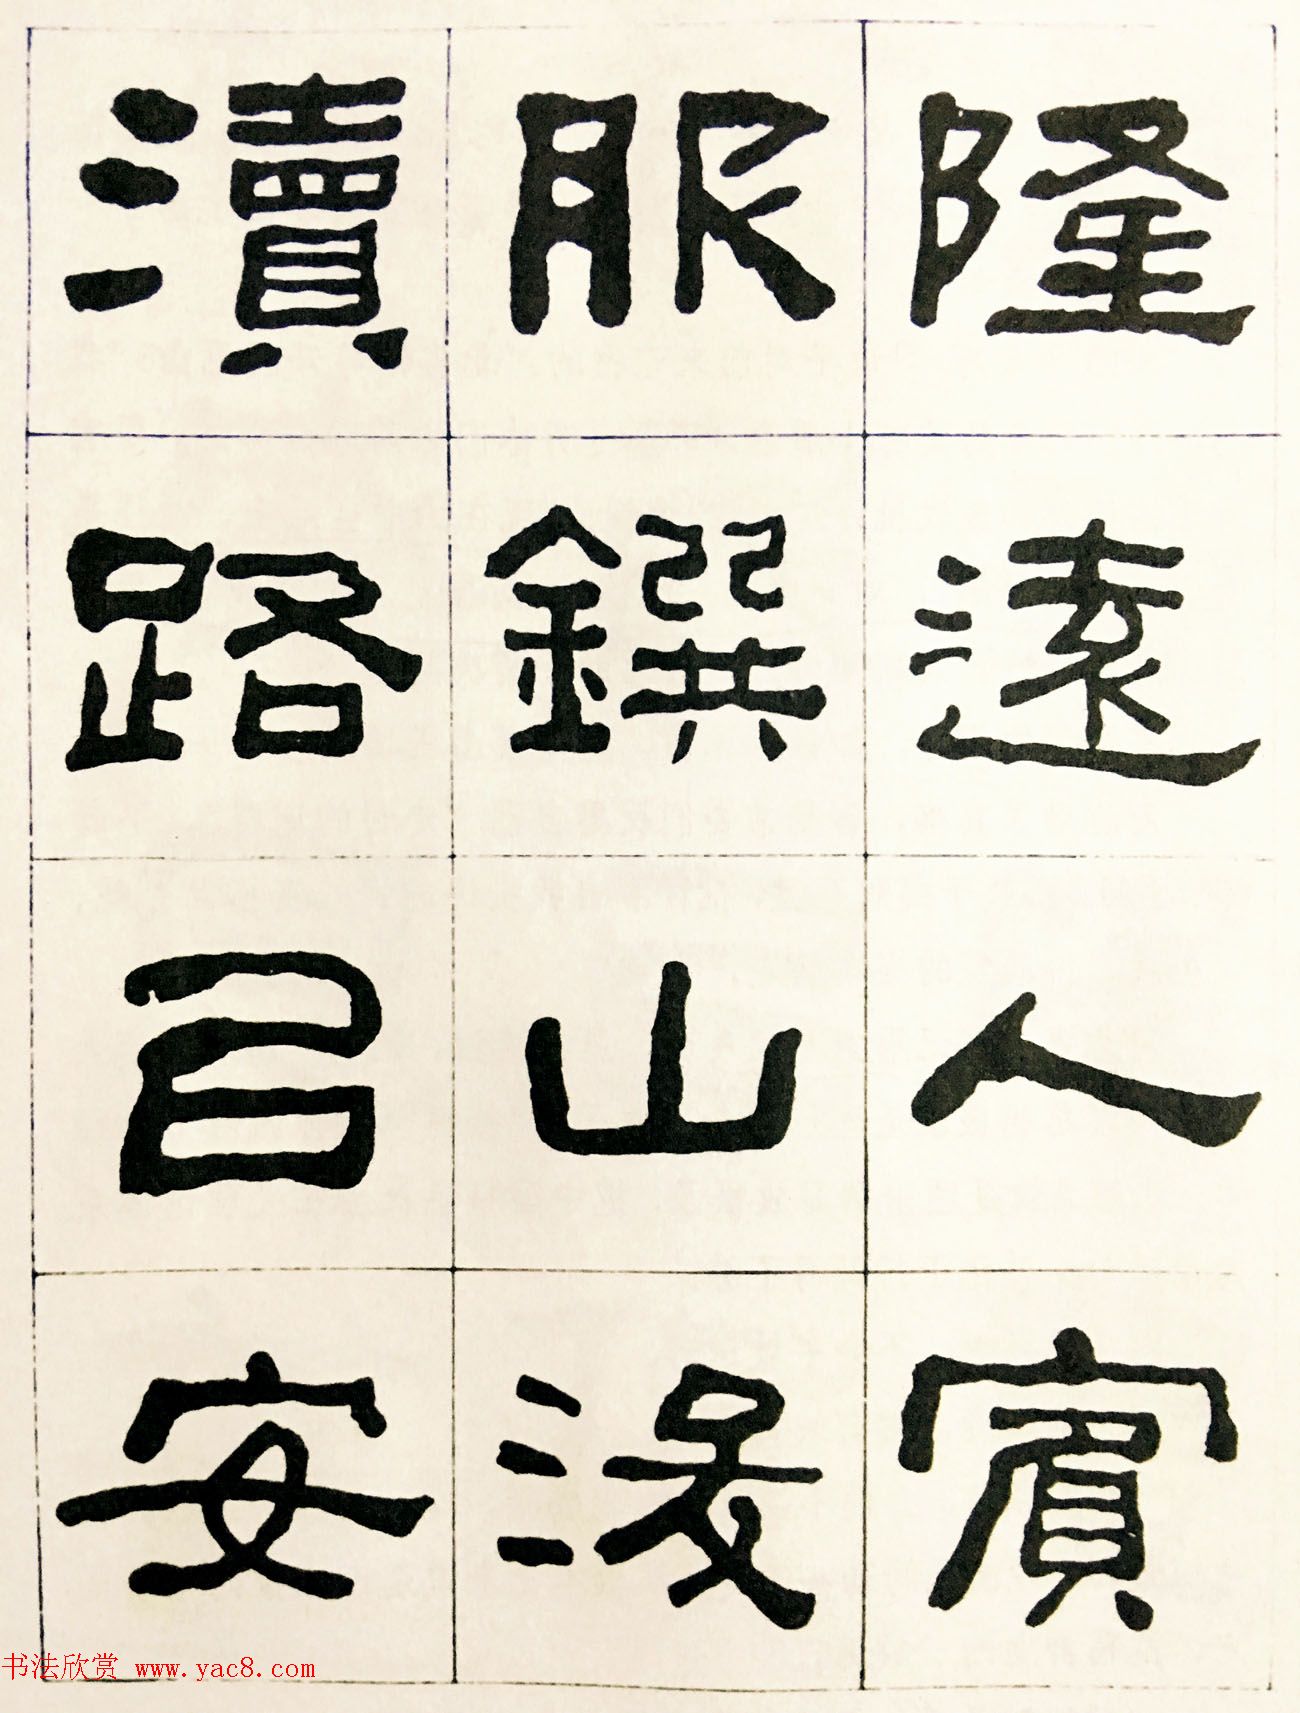 隆遠人賓
服鐉山浚
瀆路㠯安
书法欣赏 www.yac8.com